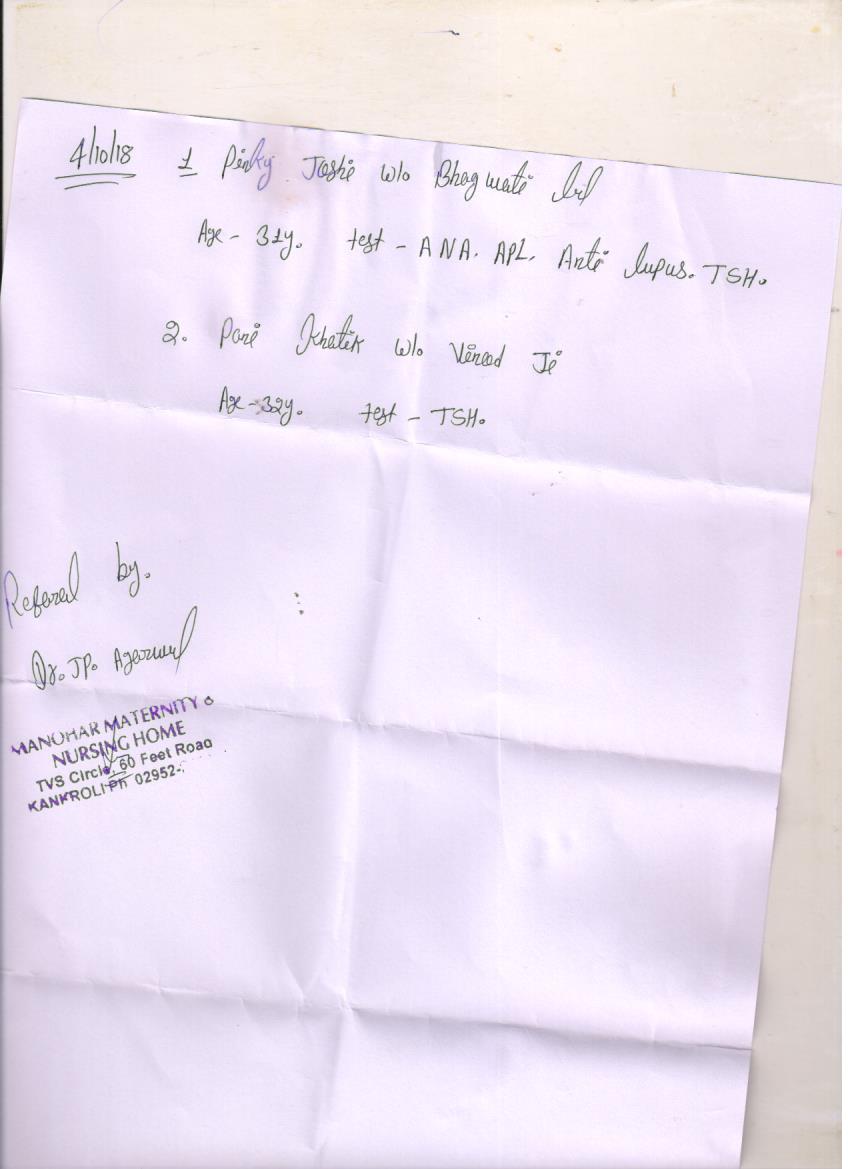 4/10/18 1 Pinky Joshi w/o Bhagwati lal
Age - 31y. test - ANA. APL. Anti lupus. TSH.
2. Pari Khatik w/o Vinod Ji
Age - 32y. test - TSH.
Refered by.
Dr. JP. Agarwal
MANOHAR MATERNITY &
NURSING HOME
TVS Circle, 60 Feet Road
KANKROLI Ph 02952-